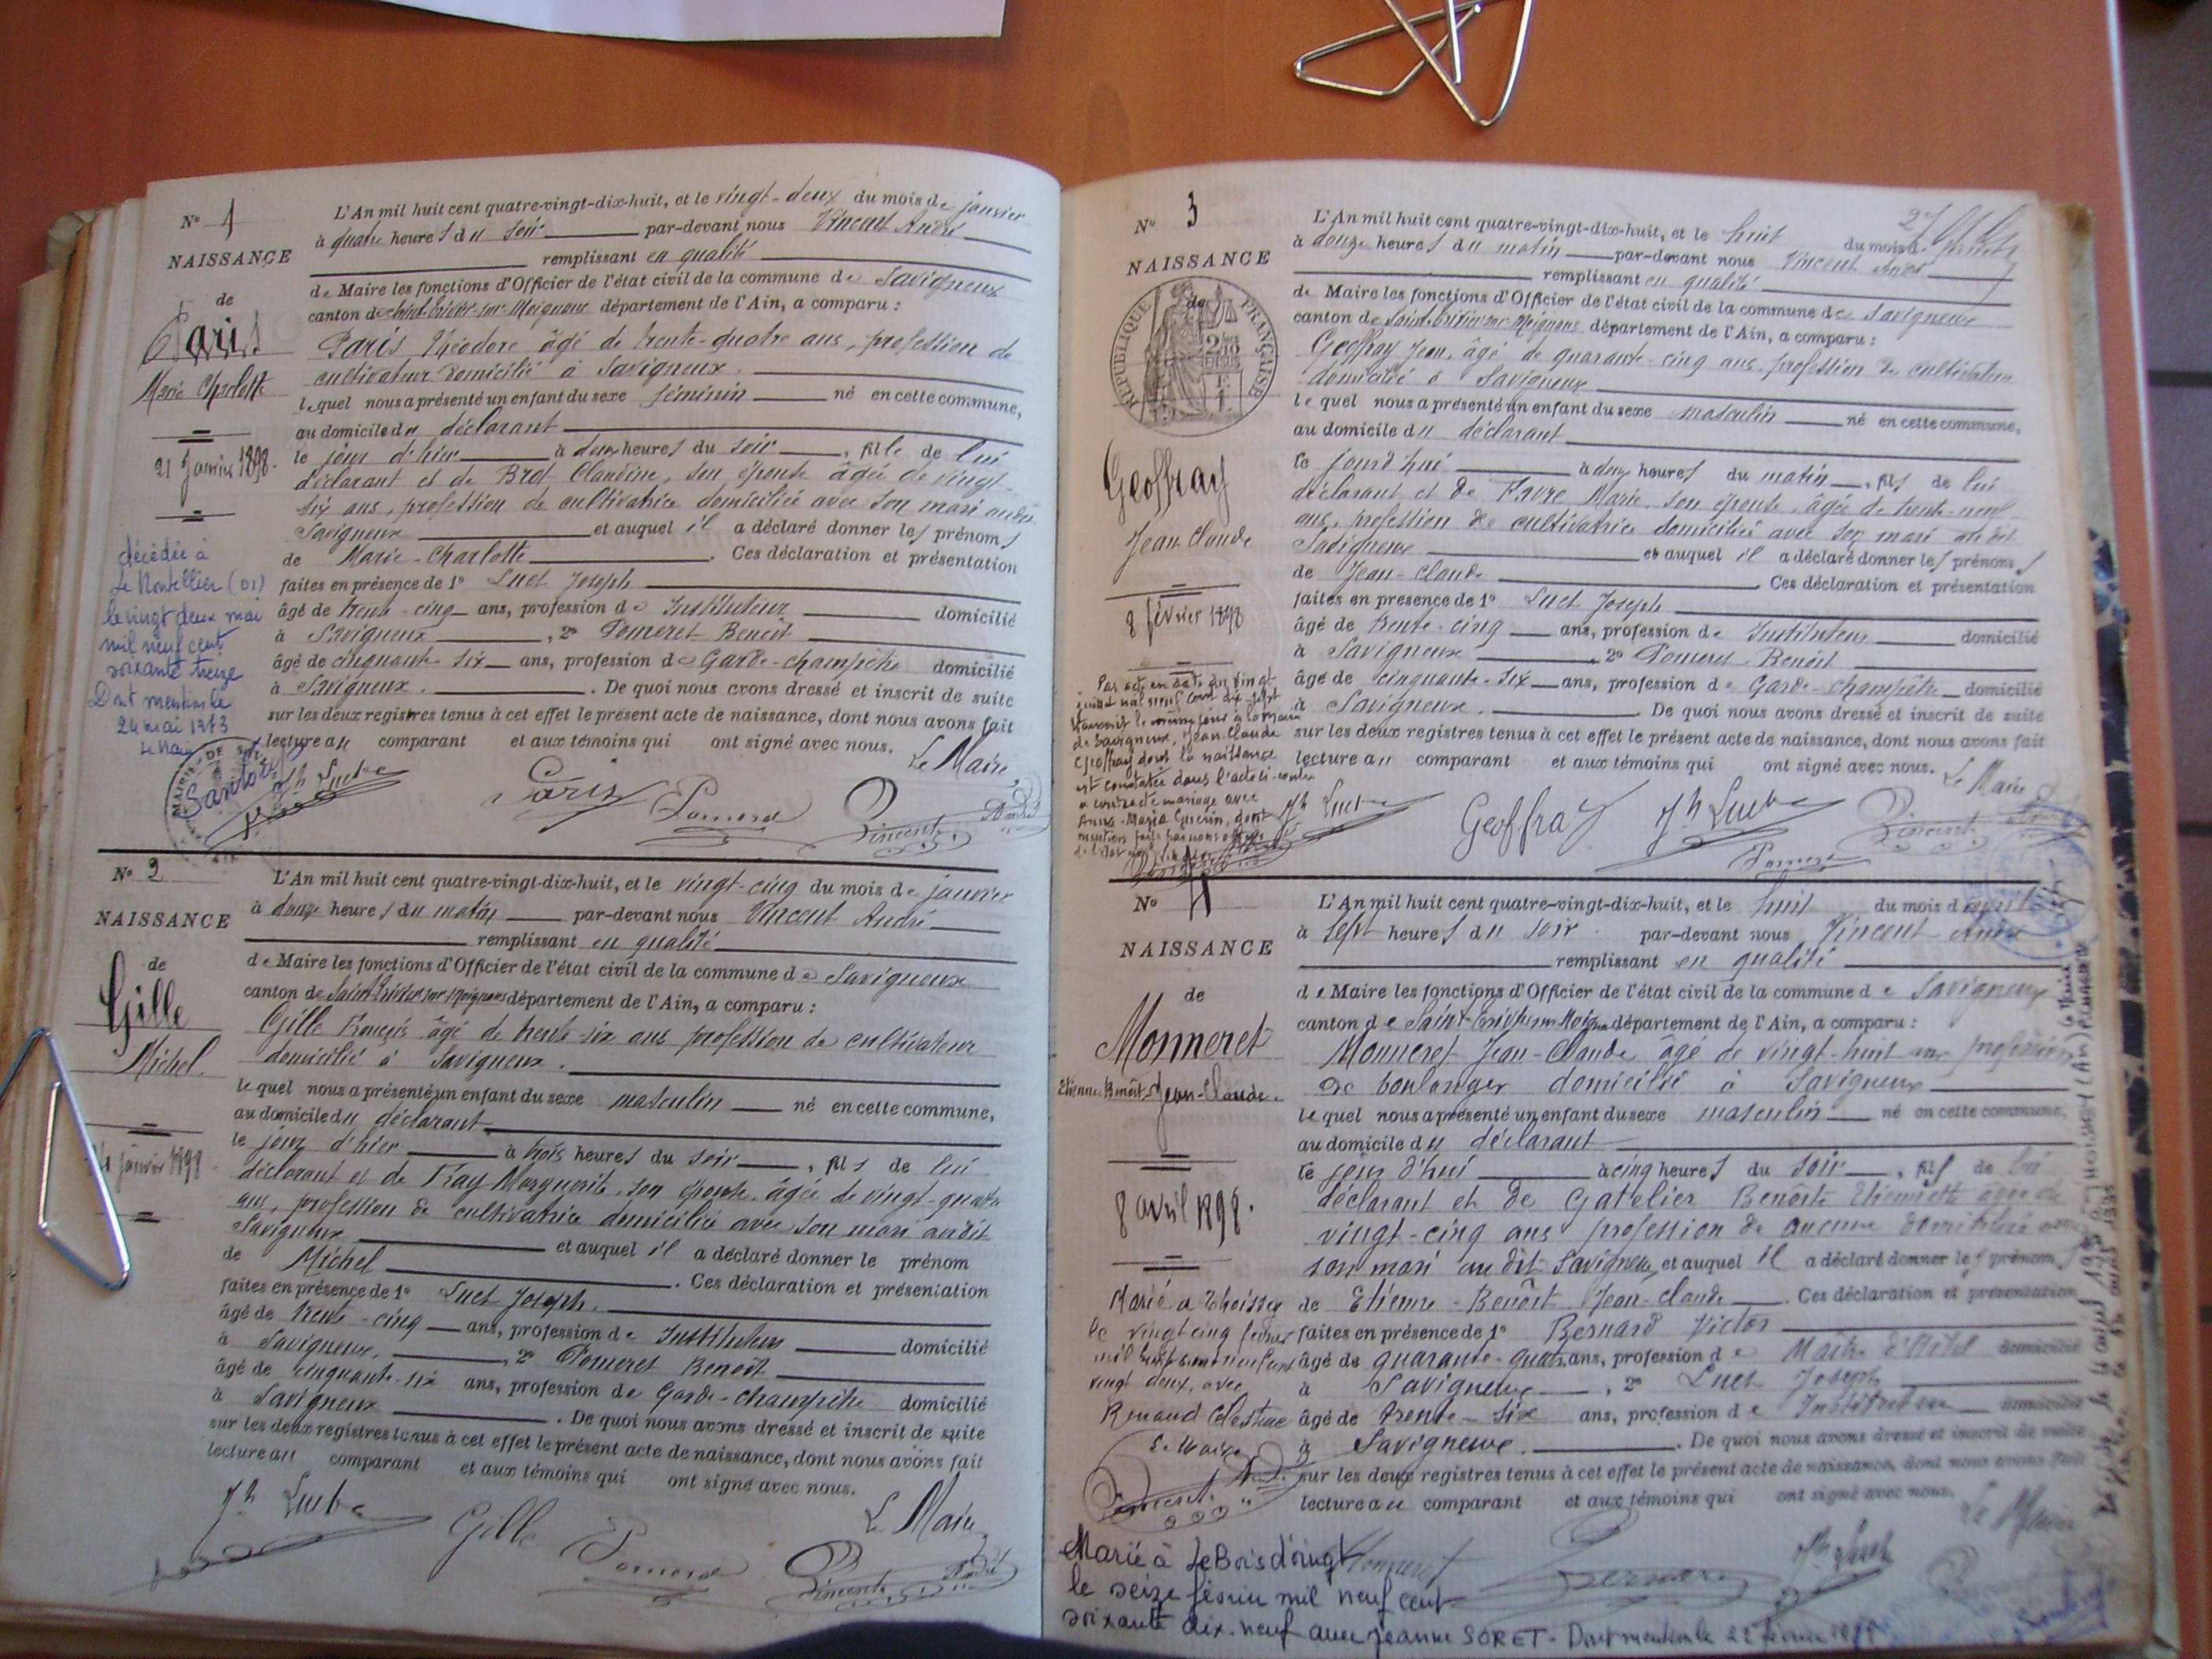 N° 1
NAISSANCE
de
Paris
Marie Charlotte
21 Janvier 1898.
décédée à
Le Montellier (01)
le vingt deux mai
mil neuf cent
soixante treize
Dont mention le
24 mai 1973
L'An mil huit cent quatre-vingt-dix-huit, et le vingt-deux du mois de janvier
à quatre heures du soir par-devant nous Vincent André
remplissant en qualité
de Maire les fonctions d'Officier de l'état civil de la commune de Savigneux
canton de Saint-Trivier-sur-Moignans département de l'Ain, a comparu :
Paris Théodore âgé de trente-quatre ans, profession de
cultivateur domicilié à Savigneux.
lequel nous a présenté un enfant du sexe féminin né en cette commune,
au domicile du déclarant
le jour d'hier à deux heures du soir, fille de lui
déclarant et de Brot Claudine, son épouse âgée de vingt-
six ans, profession de cultivatrice domiciliée avec son mari audit
Savigneux et auquel il a déclaré donner les prénoms
de Marie-Charlotte. Ces déclaration et présentation
faites en présence de 1° Luet Joseph
âgé de trente-cinq ans, profession de Instituteur domicilié
à Savigneux, 2° Pomeret Benoît
âgé de cinquante-six ans, profession de Garde-champêtre domicilié
à Savigneux. De quoi nous avons dressé et inscrit de suite
sur les deux registres tenus à cet effet le présent acte de naissance, dont nous avons fait
lecture au comparant et aux témoins qui ont signé avec nous.
Le Maire
Jh Luet Paris Pomeret Vincent André
N° 2
NAISSANCE
de
Gille
Michel.
24 janvier 1898
L'An mil huit cent quatre-vingt-dix-huit, et le vingt-cinq du mois de janvier
à douze heures du matin par-devant nous Vincent André
remplissant en qualité
de Maire les fonctions d'Officier de l'état civil de la commune de Savigneux
canton de Saint-Trivier-sur-Moignans département de l'Ain, a comparu :
Gille François âgé de trente-six ans profession de cultivateur
domicilié à Savigneux.
lequel nous a présenté un enfant du sexe masculin né en cette commune,
au domicile du déclarant
le jour d'hier à trois heures du soir, fils de lui
déclarant et de Fray Marguerite, son épouse, âgée de vingt-quatre
ans, profession de cultivatrice domiciliée avec son mari audit
Savigneux et auquel il a déclaré donner le prénom
de Michel. Ces déclaration et présentation
faites en présence de 1° Luet Joseph.
âgé de trente-cinq ans, profession de Instituteur domicilié
à Savigneux, 2° Pomeret Benoît
âgé de cinquante-six ans, profession de Garde-champêtre domicilié
à Savigneux. De quoi nous avons dressé et inscrit de suite
sur les deux registres tenus à cet effet le présent acte de naissance, dont nous avons fait
lecture au comparant et aux témoins qui ont signé avec nous.
Le Maire
Jh Luet Gille Pomeret Vincent André
N° 3
NAISSANCE
de
RÉPUBLIQUE FRANÇAISE
Geoffray
Jean Claude
8 février 1898
Par acte en date du vingt
juillet mil neuf cent dix-sept
de Savigneux, Jean-Claude
Geoffray dont la naissance
est constatée dans l'acte ci-contre
a contracté mariage avec
Anna-Maria Guérin, dont
L'An mil huit cent quatre-vingt-dix-huit, et le huit du mois de février
à douze heures du matin par-devant nous Vincent André
remplissant en qualité
de Maire les fonctions d'Officier de l'état civil de la commune de Savigneux
canton de Saint-Trivier-sur-Moignans département de l'Ain, a comparu :
Geoffray Jean, âgé de quarante-cinq ans, profession de cultivateur
domicilié à Savigneux
lequel nous a présenté un enfant du sexe masculin né en cette commune,
au domicile du déclarant
le jourd'hui à deux heures du matin, fils de lui
déclarant et de Favre Marie, son épouse, âgée de trente-neuf
ans, profession de cultivatrice domiciliée avec son mari audit
Savigneux et auquel il a déclaré donner les prénoms
de Jean-Claude. Ces déclaration et présentation
faites en présence de 1° Luet Joseph
âgé de trente-cinq ans, profession de Instituteur domicilié
à Savigneux, 2° Pomeret Benoît
âgé de cinquante-six ans, profession de Garde-champêtre domicilié
à Savigneux. De quoi nous avons dressé et inscrit de suite
sur les deux registres tenus à cet effet le présent acte de naissance, dont nous avons fait
lecture au comparant et aux témoins qui ont signé avec nous.
Le Maire
Jh Luet Geoffray Jh Luet Pomeret Vincent
N° 4
NAISSANCE
de
Monneret
Etienne Benoît Jean-Claude.
8 avril 1898.
Marié à Thoissey
le vingt cinq février
mil neuf cent
vingt deux, avec
Renaud Célestine
Le Maire
L'An mil huit cent quatre-vingt-dix-huit, et le huit du mois d'avril
à sept heures du soir par-devant nous Vincent André
remplissant en qualité
de Maire les fonctions d'Officier de l'état civil de la commune de Savigneux
canton de Saint-Trivier-sur-Moignans département de l'Ain, a comparu :
Monneret Jean-Claude âgé de vingt-huit ans profession
de boulanger domicilié à Savigneux
lequel nous a présenté un enfant du sexe masculin né en cette commune,
au domicile du déclarant
le jour d'hui à cinq heures du soir, fils de lui
déclarant et de Gatelier Benoîte Etiennette âgée de
vingt-cinq ans profession de aucune domiciliée avec
son mari audit Savigneux et auquel il a déclaré donner les prénoms
de Etienne-Benoît Jean-Claude. Ces déclaration et présentation
faites en présence de 1° Besnard Victor
âgé de quarante-quatre ans, profession de Maître d'Hôtel domicilié
à Savigneux, 2° Luet Joseph
âgé de trente-six ans, profession de Instituteur domicilié
à Savigneux. De quoi nous avons dressé et inscrit de suite
sur les deux registres tenus à cet effet le présent acte de naissance, dont nous avons fait
lecture au comparant et aux témoins qui ont signé avec nous.
Le Maire
Monneret Jh Luet
Marié à Le Bois d'oingt
le seize février mil neuf cent
soixante dix-neuf avec Jeanne SORET - Dont mention le 22 février 1979